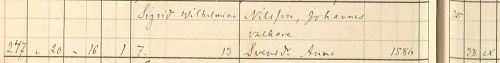 Sigrid Wilhelmina Nilsson, Johannes 35
valkare
247 " 20 " 16 1 7. 13 Svensdr Anna 1886 38 ix